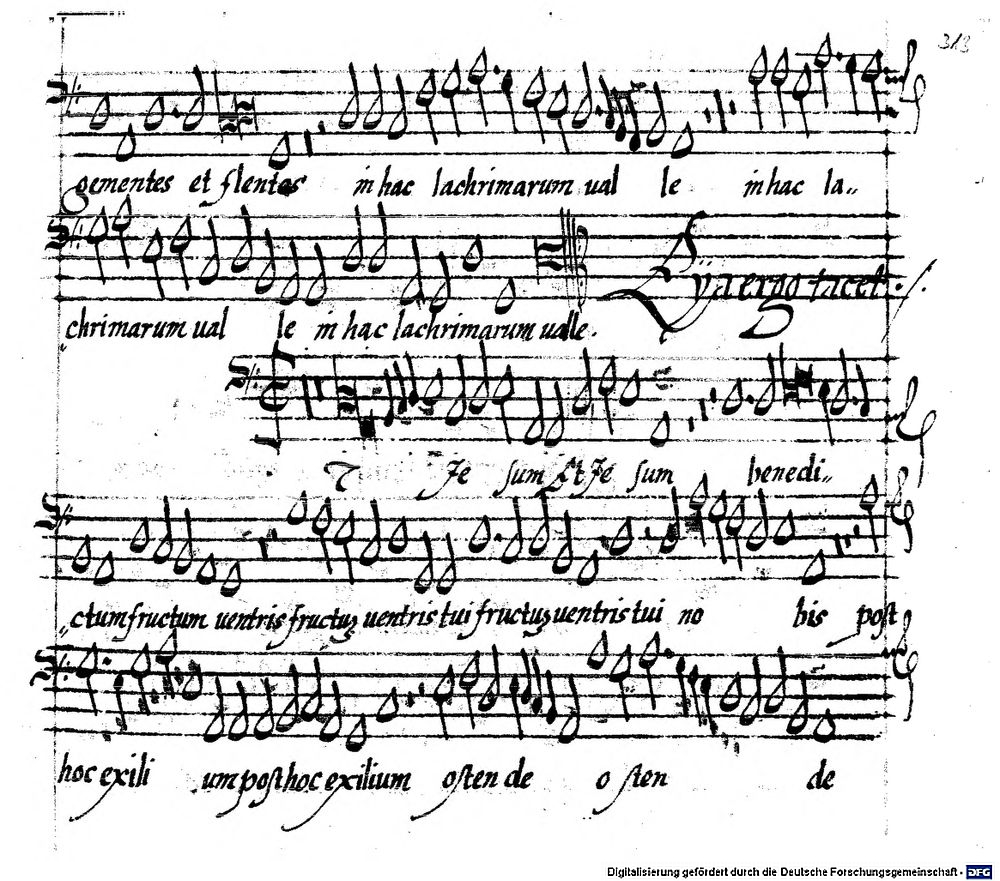 313
gementes et flentes in hac lachrimarum ual le in hac la„
Eya ergo tacet ./.
chrimarum ual le in hac lachrimarum ualle.
T Je sum Et Je sum benedi„
„ctum fructum uentris fructuz uentris tui fructuz uentris tui no bis post
hoc exili um post hoc exilium osten de o sten de
Digitalisierung gefördert durch die Deutsche Forschungsgemeinschaft - DFG